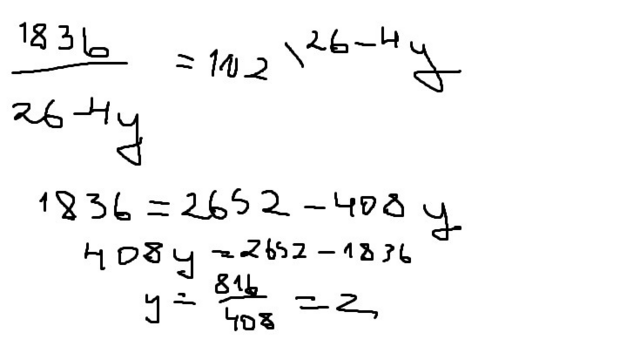 1836
26-4y = 102 \ 26-4y
1836 = 2652 - 408 y
408y = 2652 - 1836
y = 816/408 = 2